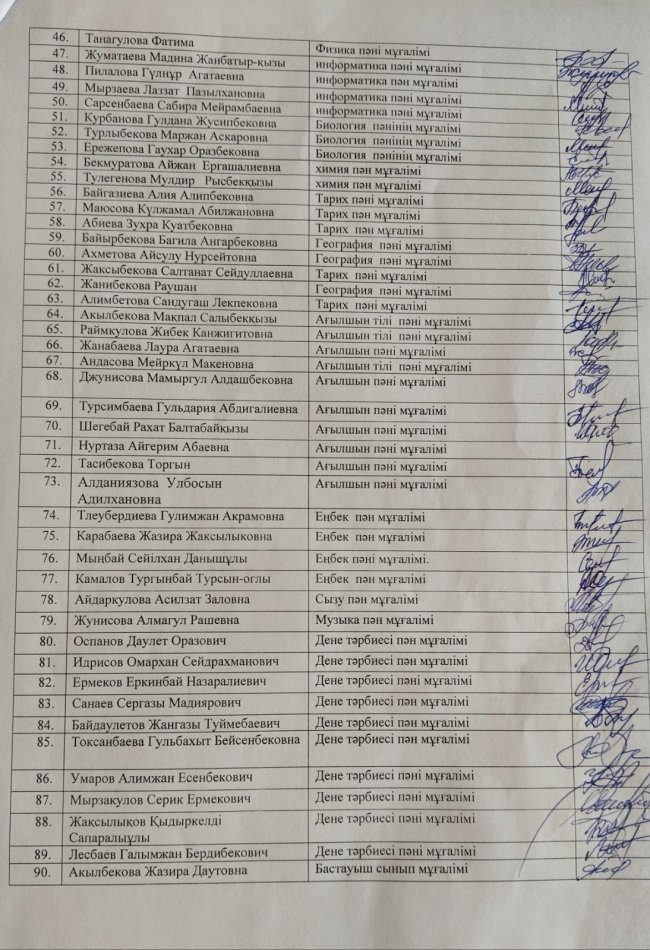 46. Танагулова Фатима Физика пәні мұғалімі
47. Жуматаева Мадина Жанбатыр-қызы информатика пәні мұғалімі
48. Пилалова Гүлнұр Агатаевна информатика пәні мұғалімі
49. Мырзаева Лаззат Пазылхановна информатика пәні мұғалімі
50. Сарсенбаева Сабира Мейрамбаевна информатика пәні мұғалімі
51. Курбанова Гулдана Жусипбековна Биология пәнінің мұғалімі
52. Турлыбекова Маржан Аскаровна Биология пәнінің мұғалімі
53. Ережепова Гаухар Оразбековна Биология пәнінің мұғалімі
54. Бекмуратова Айжан Ергашалиевна химия пән мұғалімі
55. Тулегенова Мулдир Рысбекқызы химия пән мұғалімі
56. Байгазиева Алия Алипбековна Тарих пән мұғалімі
57. Маюсова Күлжамал Абилжановна Тарих пән мұғалімі
58. Абиева Зухра Қуатбековна Тарих пән мұғалімі
59. Байырбекова Багила Ангарбековна География пәні мұғалімі
60. Ахметова Айсулу Нурсейтовна География пәні мұғалімі
61. Жаксыбекова Салтанат Сейдуллаевна Тарих пәні мұғалімі
62. Жанибекова Раушан География пәні мұғалімі
63. Алимбетова Сандугаш Лекпековна Тарих пәні мұғалімі
64. Акылбекова Мақпал Салыбекқызы Ағылшын тілі пәні мұғалімі
65. Раймкулова Жибек Канжигитовна Ағылшын пәні мұғалімі
66. Жанабаева Лаура Агатаевна Ағылшын пәні мұғалімі
67. Андасова Мейркүл Макеновна Ағылшын тілі пәні мұғалімі
68. Джунисова Мамыргул Алдашбековна Ағылшын пәні мұғалімі
69. Турсимбаева Гульдария Абдигалиевна Ағылшын пәні мұғалімі
70. Шегебай Рахат Балтабайқызы Ағылшын пәні мұғалімі
71. Нуртаза Айгерим Абаевна Ағылшын пәні мұғалімі
72. Тасибекова Торгын Ағылшын пәні мұғалімі
73. Алданиязова Улбосын Ағылшын пәні мұғалімі
Адилхановна
74. Тлеубердиева Гулимжан Акрамовна Еңбек пән мұғалімі
75. Карабаева Жазира Жаксылыковна Еңбек пән мұғалімі
76. Мыңбай Сейілхан Данышұлы Еңбек пәні мұғалімі.
77. Камалов Тургынбай Турсын-оглы Еңбек пән мұғалімі
78. Айдаркулова Асилзат Заловна Сызу пән мұғалімі
79. Жунисова Алмагул Рашевна Музыка пән мұғалімі
80. Оспанов Даулет Оразович Дене тәрбиесі пән мұғалімі
81. Идрисов Омархан Сейдрахманович Дене тәрбиесі пән мұғалімі
82. Ермеков Еркинбай Назаралиевич Дене тәрбиесі пән мұғалімі
83. Санаев Сергазы Мадиярович Дене тәрбиесі пән мұғалімі
84. Байдаулетов Жангазы Туймебаевич Дене тәрбиесі пән мұғалімі
85. Токсанбаева Гульбахыт Бейсенбековна Дене тәрбиесі пән мұғалімі
86. Умаров Алимжан Есенбекович Дене тәрбиесі пәні мұғалімі
87. Мырзакулов Серик Ермекович Дене тәрбиесі пәні мұғалімі
88. Жақсылыков Қыдыркелді Дене тәрбиесі пәні мұғалімі
Сапаралыұлы
89. Лесбаев Галымжан Бердибекович Дене тәрбиесі пәні мұғалімі
90. Акылбекова Жазира Даутовна Бастауыш сынып мұғалімі